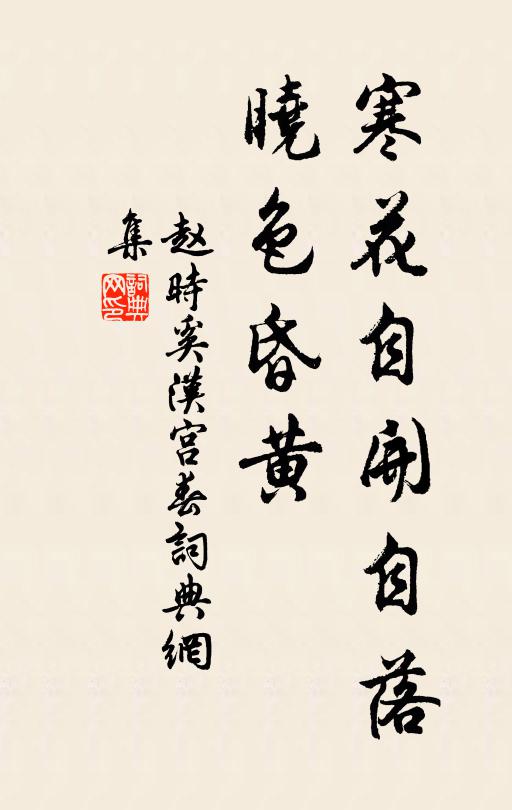 寒花自開自落
曉色昏黃
赵時奚漢宮春詞典網
集
詞典
网印